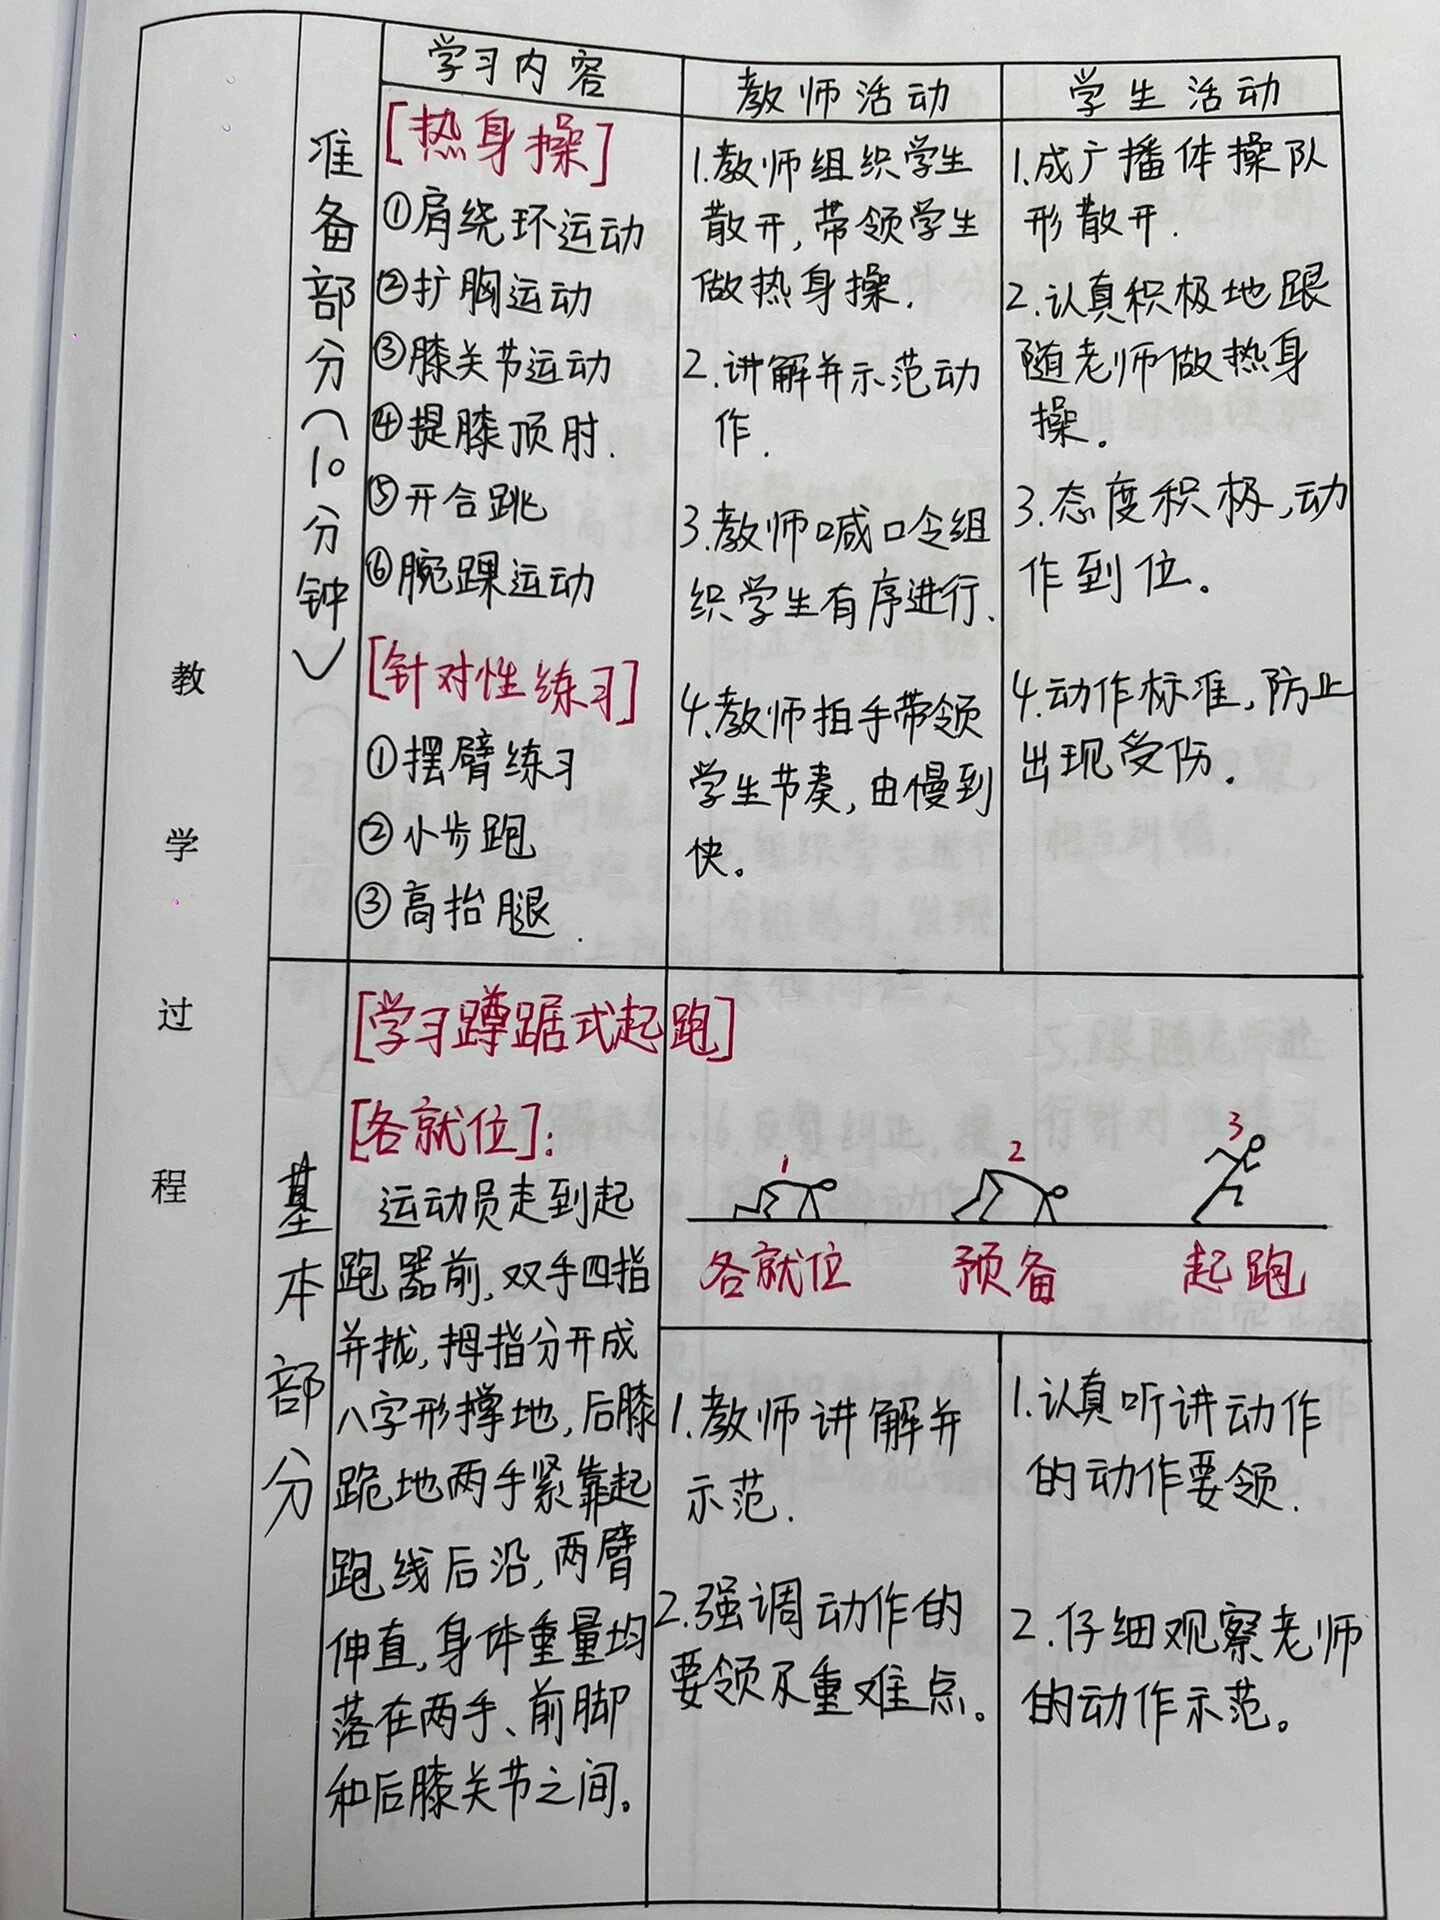 教学过程
准备部分(10分钟)
学习内容
[热身操]
①肩绕环运动
②扩胸运动
③膝关节运动
④提膝顶肘.
⑤开合跳
⑥腕踝运动
[针对性练习]
①摆臂练习
②小步跑
③高抬腿.
教师活动
1.教师组织学生
散开,带领学生
做热身操.
2.讲解并示范动
作.
3.教师喊口令组
织学生有序进行.
4.教师拍手带领
学生节奏,由慢到
快。
学生活动
1.成广播体操队
形散开.
2.认真积极地跟
随老师做热身
操。
3.态度积极,动
作到位。
4.动作标准,防止
出现受伤.
基本部分
[学习蹲踞式起跑]
[各就位]:
运动员走到起
跑器前,双手四指
并拢,拇指分开成
八字形撑地,后膝
跪地两手紧靠起
跑线后沿,两臂
伸直,身体重量均
落在两手、前脚
和后膝关节之间。
1 2 3
各就位 预备 起跑
1.教师讲解并
示范.
2.强调动作的
要领及重难点。
1.认真听讲动作
的动作要领.
2.仔细观察老师
的动作示范。